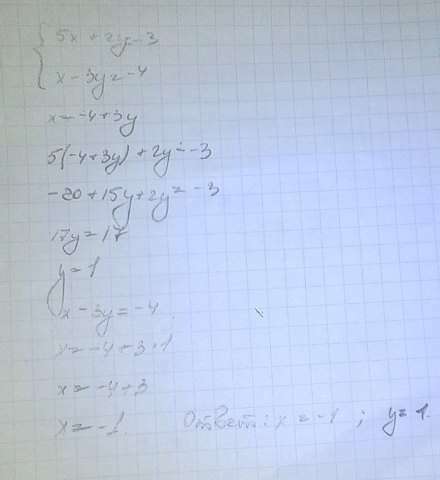 5x + 2y = -3
x - 3y = -4
x = -4 + 3y
5(-4 + 3y) + 2y = -3
-20 + 15y + 2y = -3
17y = 17
y = 1
x - 3y = -4
x = -4 + 3·1
x = -4 + 3
x = -1. Ответ: x = -1 ; y = 1.